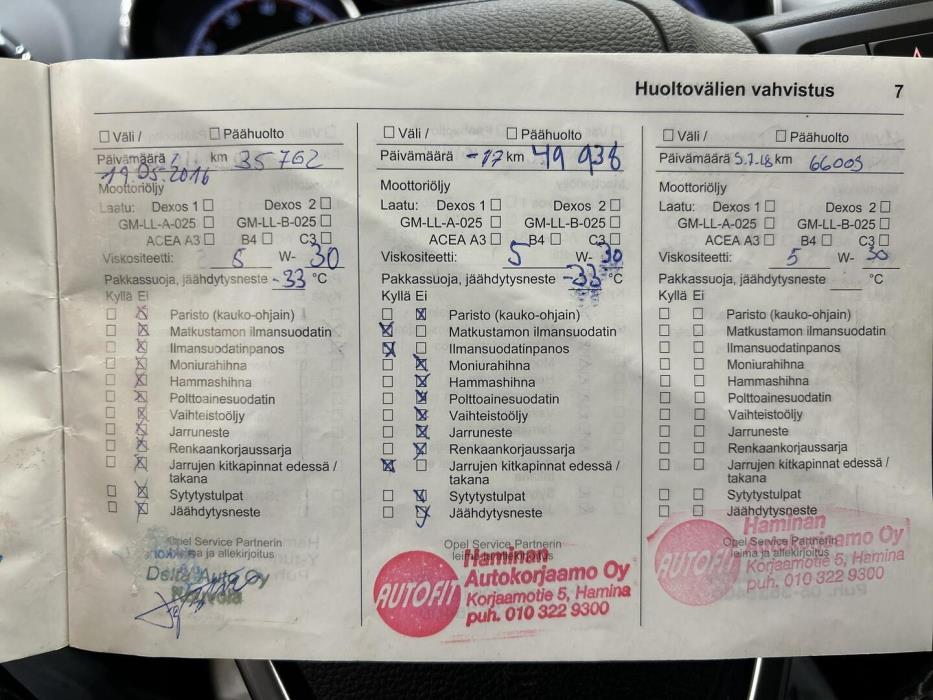 Huoltovälien vahvistus 7
Väli / Päähuolto
Päivämäärä km 35 762
19.05.2016
Moottoriöljy
Laatu: Dexos 1 Dexos 2
GM-LL-A-025 GM-LL-B-025
ACEA A3 B4 C3
Viskositeetti: 5 W- 30
Pakkassuoja, jäähdytysneste -33 °C
Kyllä Ei
Paristo (kauko-ohjain)
Matkustamon ilmansuodatin
Ilmansuodatinpanos
Moniurahihna
Hammashihna
Polttoainesuodatin
Vaihteistoöljy
Jarruneste
Renkaankorjaussarja
Jarrujen kitkapinnat edessä /
takana
Sytytystulpat
Jäähdytysneste
Opel Service Partnerin
leima ja allekirjoitus
Delta Auto Oy
Väli / Päähuolto
Päivämäärä -17 km 49 938
Moottoriöljy
Laatu: Dexos 1 Dexos 2
GM-LL-A-025 GM-LL-B-025
ACEA A3 B4 C3
Viskositeetti: 5 W- 30
Pakkassuoja, jäähdytysneste -33 °C
Kyllä Ei
Paristo (kauko-ohjain)
Matkustamon ilmansuodatin
Ilmansuodatinpanos
Moniurahihna
Hammashihna
Polttoainesuodatin
Vaihteistoöljy
Jarruneste
Renkaankorjaussarja
Jarrujen kitkapinnat edessä /
takana
Sytytystulpat
Jäähdytysneste
Opel Service Partnerin
leima ja allekirjoitus
AUTOFIT
Haminan
Autokorjaamo Oy
Korjaamotie 5, Hamina
puh. 010 322 9300
Väli / Päähuolto
Päivämäärä 5.7.18 km 66009
Moottoriöljy
Laatu: Dexos 1 Dexos 2
GM-LL-A-025 GM-LL-B-025
ACEA A3 B4 C3
Viskositeetti: 5 W- 30
Pakkassuoja, jäähdytysneste °C
Kyllä Ei
Paristo (kauko-ohjain)
Matkustamon ilmansuodatin
Ilmansuodatinpanos
Moniurahihna
Hammashihna
Polttoainesuodatin
Vaihteistoöljy
Jarruneste
Renkaankorjaussarja
Jarrujen kitkapinnat edessä /
takana
Sytytystulpat
Jäähdytysneste
Opel Service Partnerin
leima ja allekirjoitus
AUTOFIT
Haminan
Autokorjaamo Oy
Korjaamotie 5, Hamina
puh. 010 322 9300